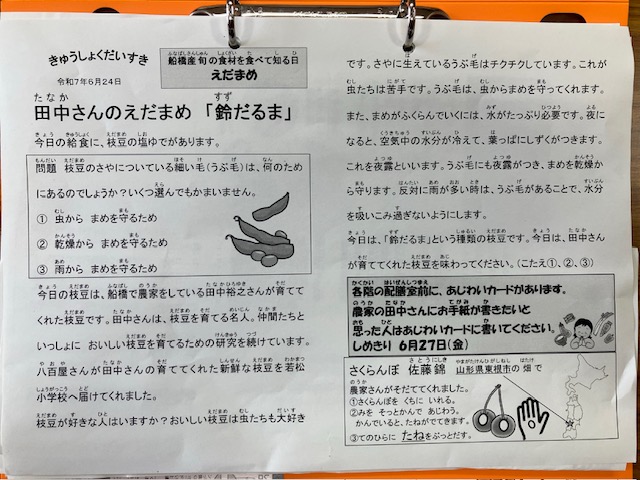 きゅうしょくだいすき
令和7年6月24日
船橋産旬の食材を食べて知る日
えだまめ
田中さんのえだまめ 「鈴だるま」
今日の給食に、枝豆の塩ゆでがあります。
問題 枝豆のさやについている細い毛(うぶげ)は、何のため
にあるのでしょうか？いくつ選んでもかまいません。
① 虫から まめを守るため
② 乾燥から まめを守るため
③ 雨から まめを守るため
今日の枝豆は、船橋で農家をしている田中裕之さんが育て
てくれた枝豆です。田中さんは、枝豆を育てる名人。仲間たちと
いっしょに おいしい枝豆を育てるための研究を続けています。
八百屋さんが田中さんの育ててくれた新鮮な枝豆を若松
小学校へ届けてくれました。
枝豆が好きな人はいますか？おいしい枝豆は虫たちも大好き
です。さやに生えているうぶ毛はチクチクしています。これが
虫たちは苦手です。うぶ毛は、虫からまめを守ってくれます。
また、まめがふくらんでいくには、水がたっぷり必要です。夜に
なると、空気中の水分が冷えて、葉っぱにしずくがつきます。
これを夜露といいます。うぶ毛にも夜露がつき、まめを乾燥か
ら守ります。反対に雨が多い時は、うぶ毛があることで、水分
を吸いこみ過ぎないようにします。
今日は、「鈴だるま」という種類の枝豆です。今日は、田中さん
が育ててくれた枝豆を味わってください。(こたえ①、②、③)
各階の配膳室前に、あじわいカードがあります。
農家の田中さんにお手紙が書きたいと
思った人はあじわいカードに書いてください。
しめきり 6月27日(金)
さくらんぼ 佐藤錦 山形県東根市の畑で
農家さんがそだててくれました。
①さくらんぼを くちに いれる。
②みを そっとかんで あじわう。
かんでいると、たねがでてきます。
③てのひらに たねをぷっとだす。